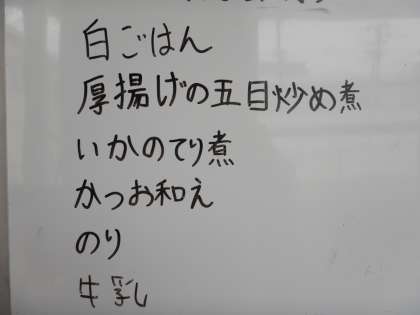 白ごはん
厚揚げの五目炒め煮
いかのてり煮
かつお和え
のり
牛乳